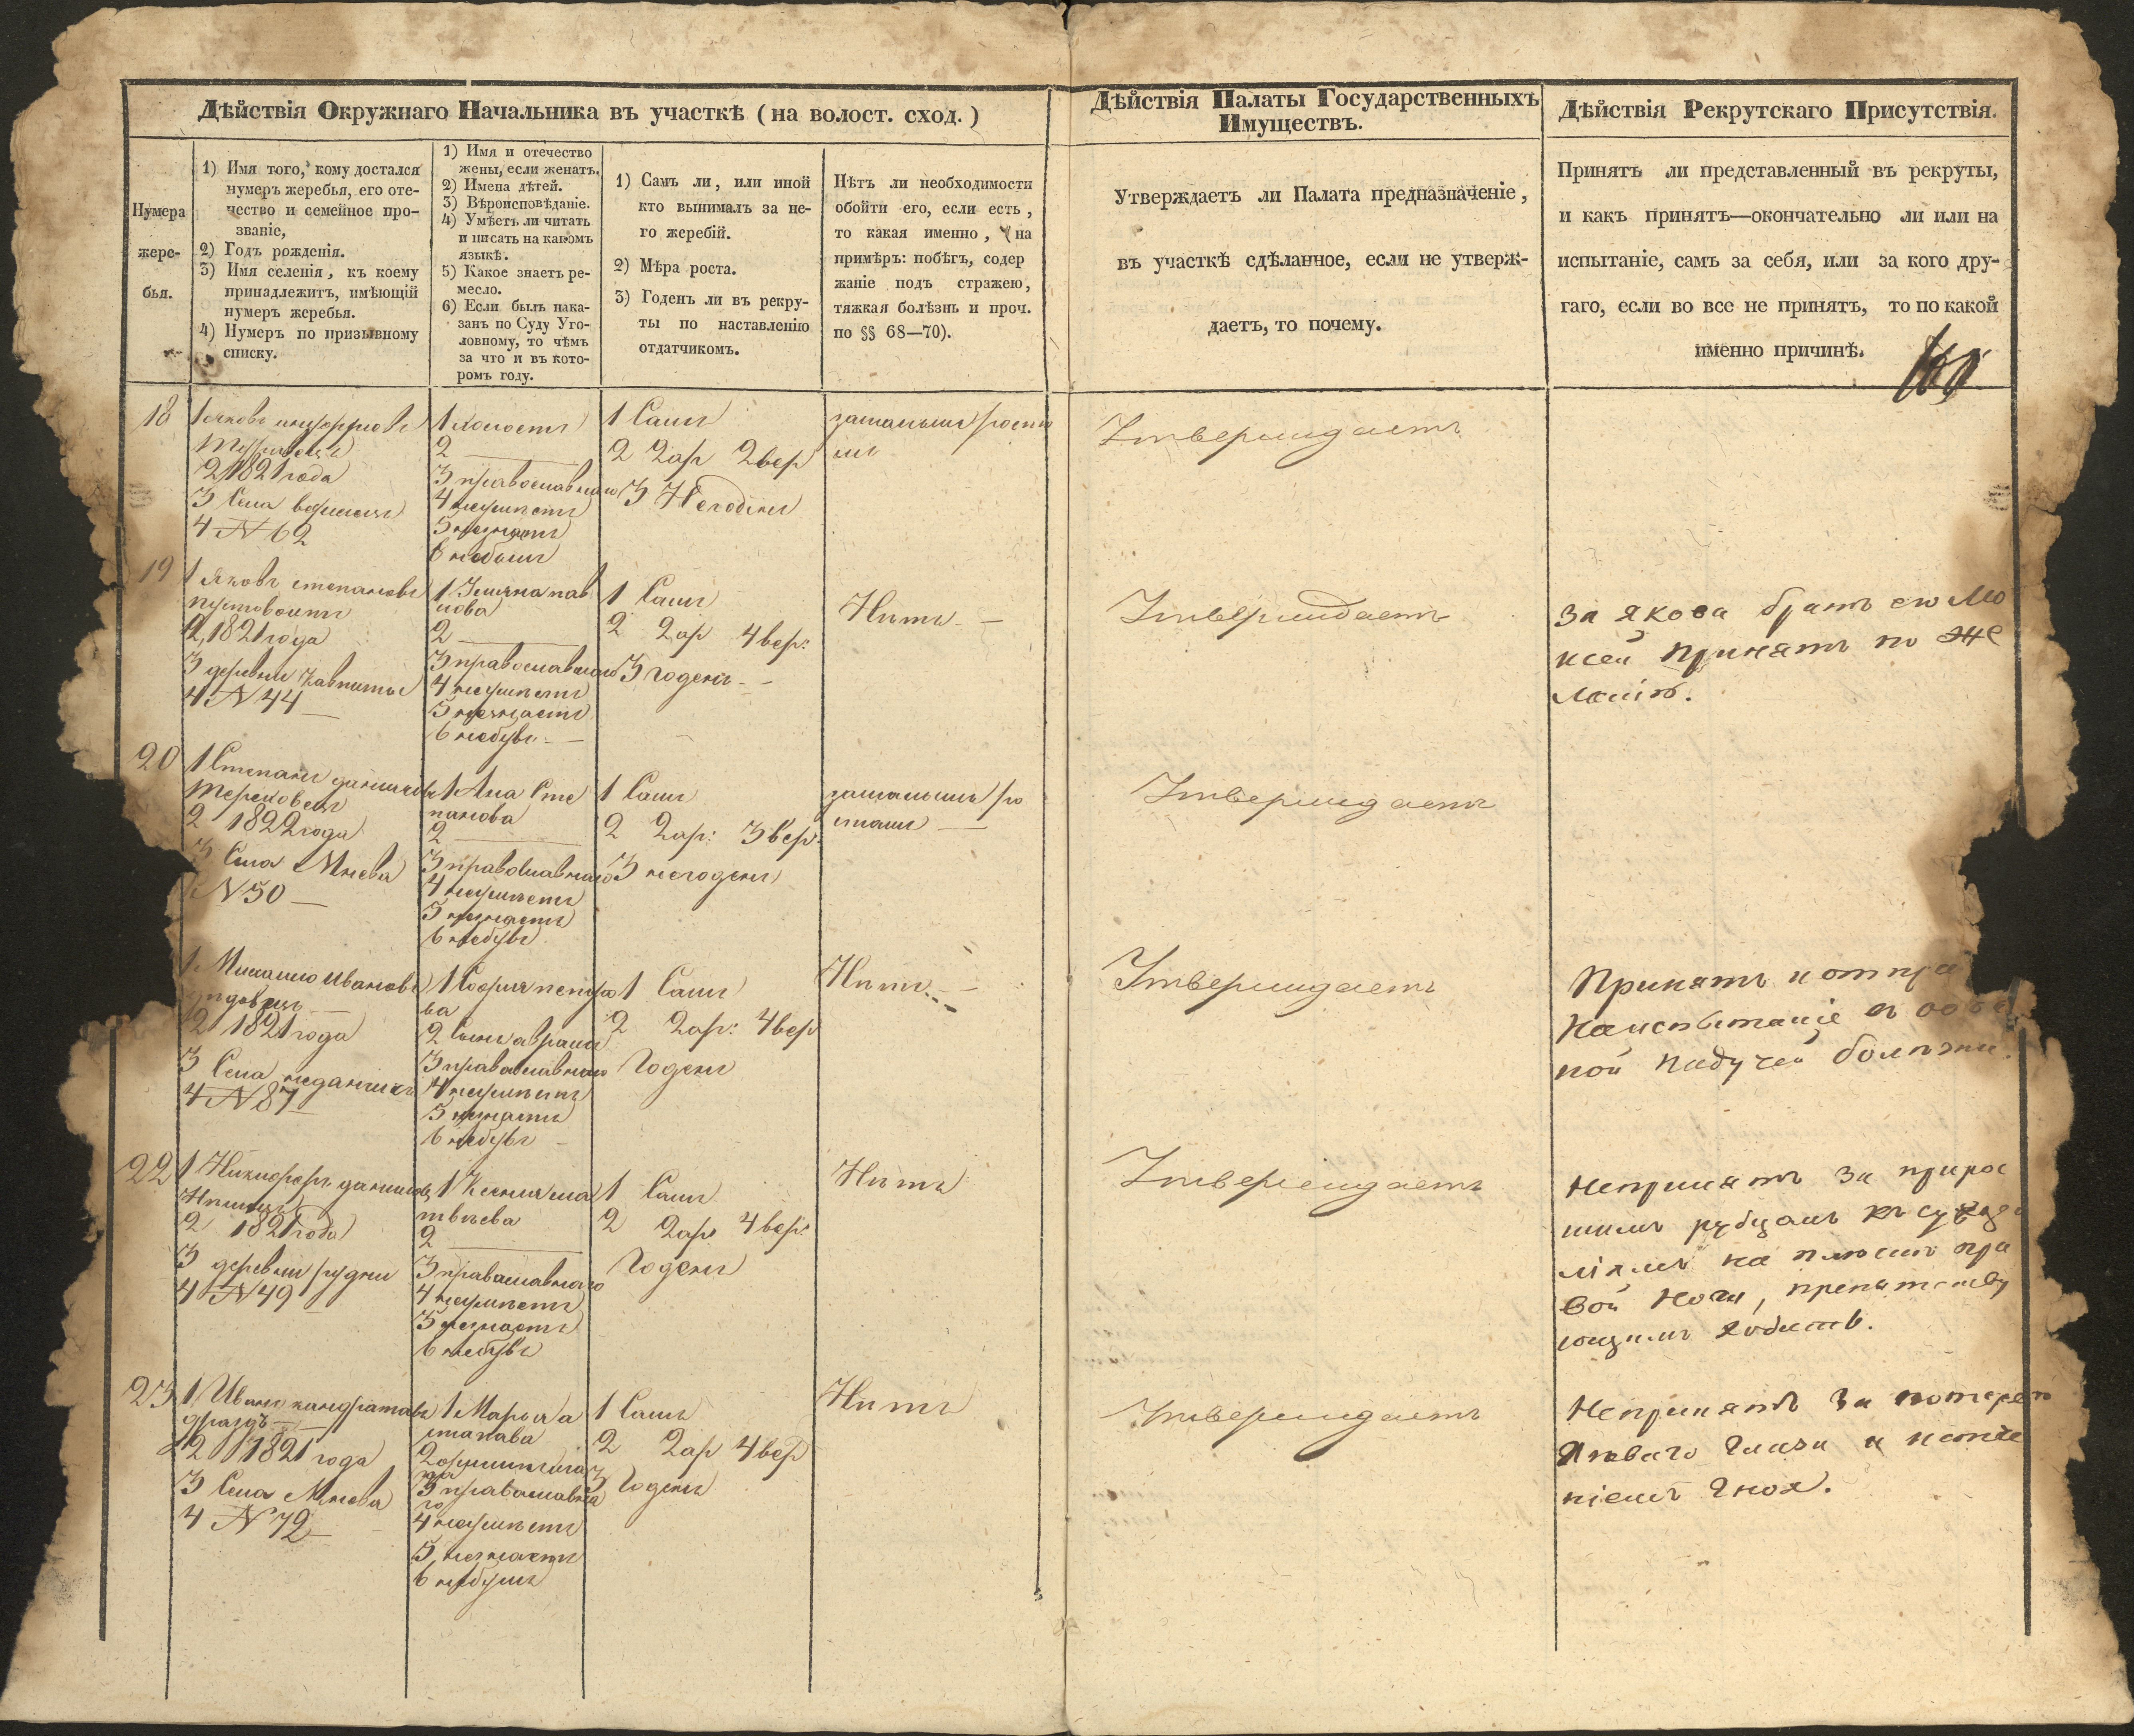 Дѣйствія Окружнаго Начальника въ участкѣ (на волост. сход.)
Нумера
жере-
бья.
1) Имя того, кому достался
нумеръ жеребья, его оте-
чество и семейное про-
званіе,
2) Годъ рожденія.
3) Имя селенія, къ коему
принадлежитъ, имѣющій
нумеръ жеребья.
4) Нумеръ по призывному
списку.
1) Имя и отечество
жены, если женатъ.
2) Имена дѣтей.
3) Вѣроисповѣданіе.
4) Умѣетъ ли читать
и писать на какомъ
языкѣ.
5) Какое знаетъ ре-
месло.
6) Если былъ нака-
занъ по Суду Уго-
ловному, то чѣмъ
за что и въ кото-
ромъ году.
1) Самъ ли, или иной
кто вынималъ за не-
го жеребій.
2) Мѣра роста.
3) Годенъ ли въ рекру-
ты по наставленію
отдатчикомъ.
Нѣтъ ли необходимости
обойти его, если есть,
то какая именно, (на
примѣръ: побѣгъ, содер
жаніе подъ стражею,
тяжкая болѣзнь и проч.
по §§ 68—70).
Дѣйствія Палаты Государственныхъ
Имуществъ.
Утверждаетъ ли Палата предназначеніе,
въ участкѣ сдѣланное, если не утверж-
даетъ, то почему.
Дѣйствія Рекрутскаго Присутствія.
Принятъ ли представленный въ рекруты,
и какъ принятъ—окончательно ли или на
испытаніе, самъ за себя, или за кого дру-
гаго, если во все не принятъ, то по какой
именно причинѣ.
18
1 Яковъ
2 1821 года
3 Села
4 N 62
1 Холостъ
2
3 православнаго
4 неумѣетъ
5 незнаетъ
6 небылъ
1 Самъ
2 2 ар 2 вер
3 Негоденъ
замалымъ росто
мъ
Утверждаетъ
19
1 Яковъ степановъ
2 1821 года
3 деревни
4 N 44
1 Ульяна пав
лова
2
3 православнаго
4 неумѣетъ
5 незнаетъ
6 небувъ
1 Самъ
2 2 ар 4 вер:
3 годенъ
Нѣтъ
Утверждаетъ
За Якова братъ его Мо
исей принятъ по же
ланію.
20
1 Степанъ даниловъ
2 1822 года
3 Села Мнева
N 50
1 Ана Сте
панова
2
3 православнаго
4 неумѣетъ
5 незнаетъ
6 небувъ
1 Самъ
2 2 ар: 3 вер.
3 негоденъ
замалымъ ро
стомъ
Утверждаетъ
1. Михайло Ивановъ
2 1821 года
3 Села
4 N 87
1 Софья петро
ва
2 Сынъ
3 православнаго
4 неумѣетъ
5 незнаетъ
6 небувъ
1 Самъ
2 2 ар: 4 вер
Годенъ
Нѣтъ
Утверждаетъ
Принятъ и отпра
на испытаніе
ной падучей болѣзни.
22
1 Никифоръ даниловъ
2 1821 года
3 деревни рудни
4 N 49
1 Ксенія ма
твѣева
2
3 православнаго
4 неумѣетъ
5 незнаетъ
6 небувъ
1 Самъ
2 2 ар 4 вер:
Годенъ
Нѣтъ
Утверждаетъ
Непринятъ за прирос
шимъ рубцамъ къ сухожи
ліямъ на плюснѣ пра
вой ноги, препятству
ющимъ ходить.
23
1 Иванъ кандратовъ
2 1821 года
3 Села Мнева
4 N 72
1 Марья а
2
3 православна
го
4 неумѣетъ
5 незнаетъ
6 небулъ
1 Самъ
2 2 ар 4 вер
3 Годенъ
Нѣтъ
Утверждаетъ
Непринятъ за потерею
лѣваго глаза и истче
ніемъ гноя.